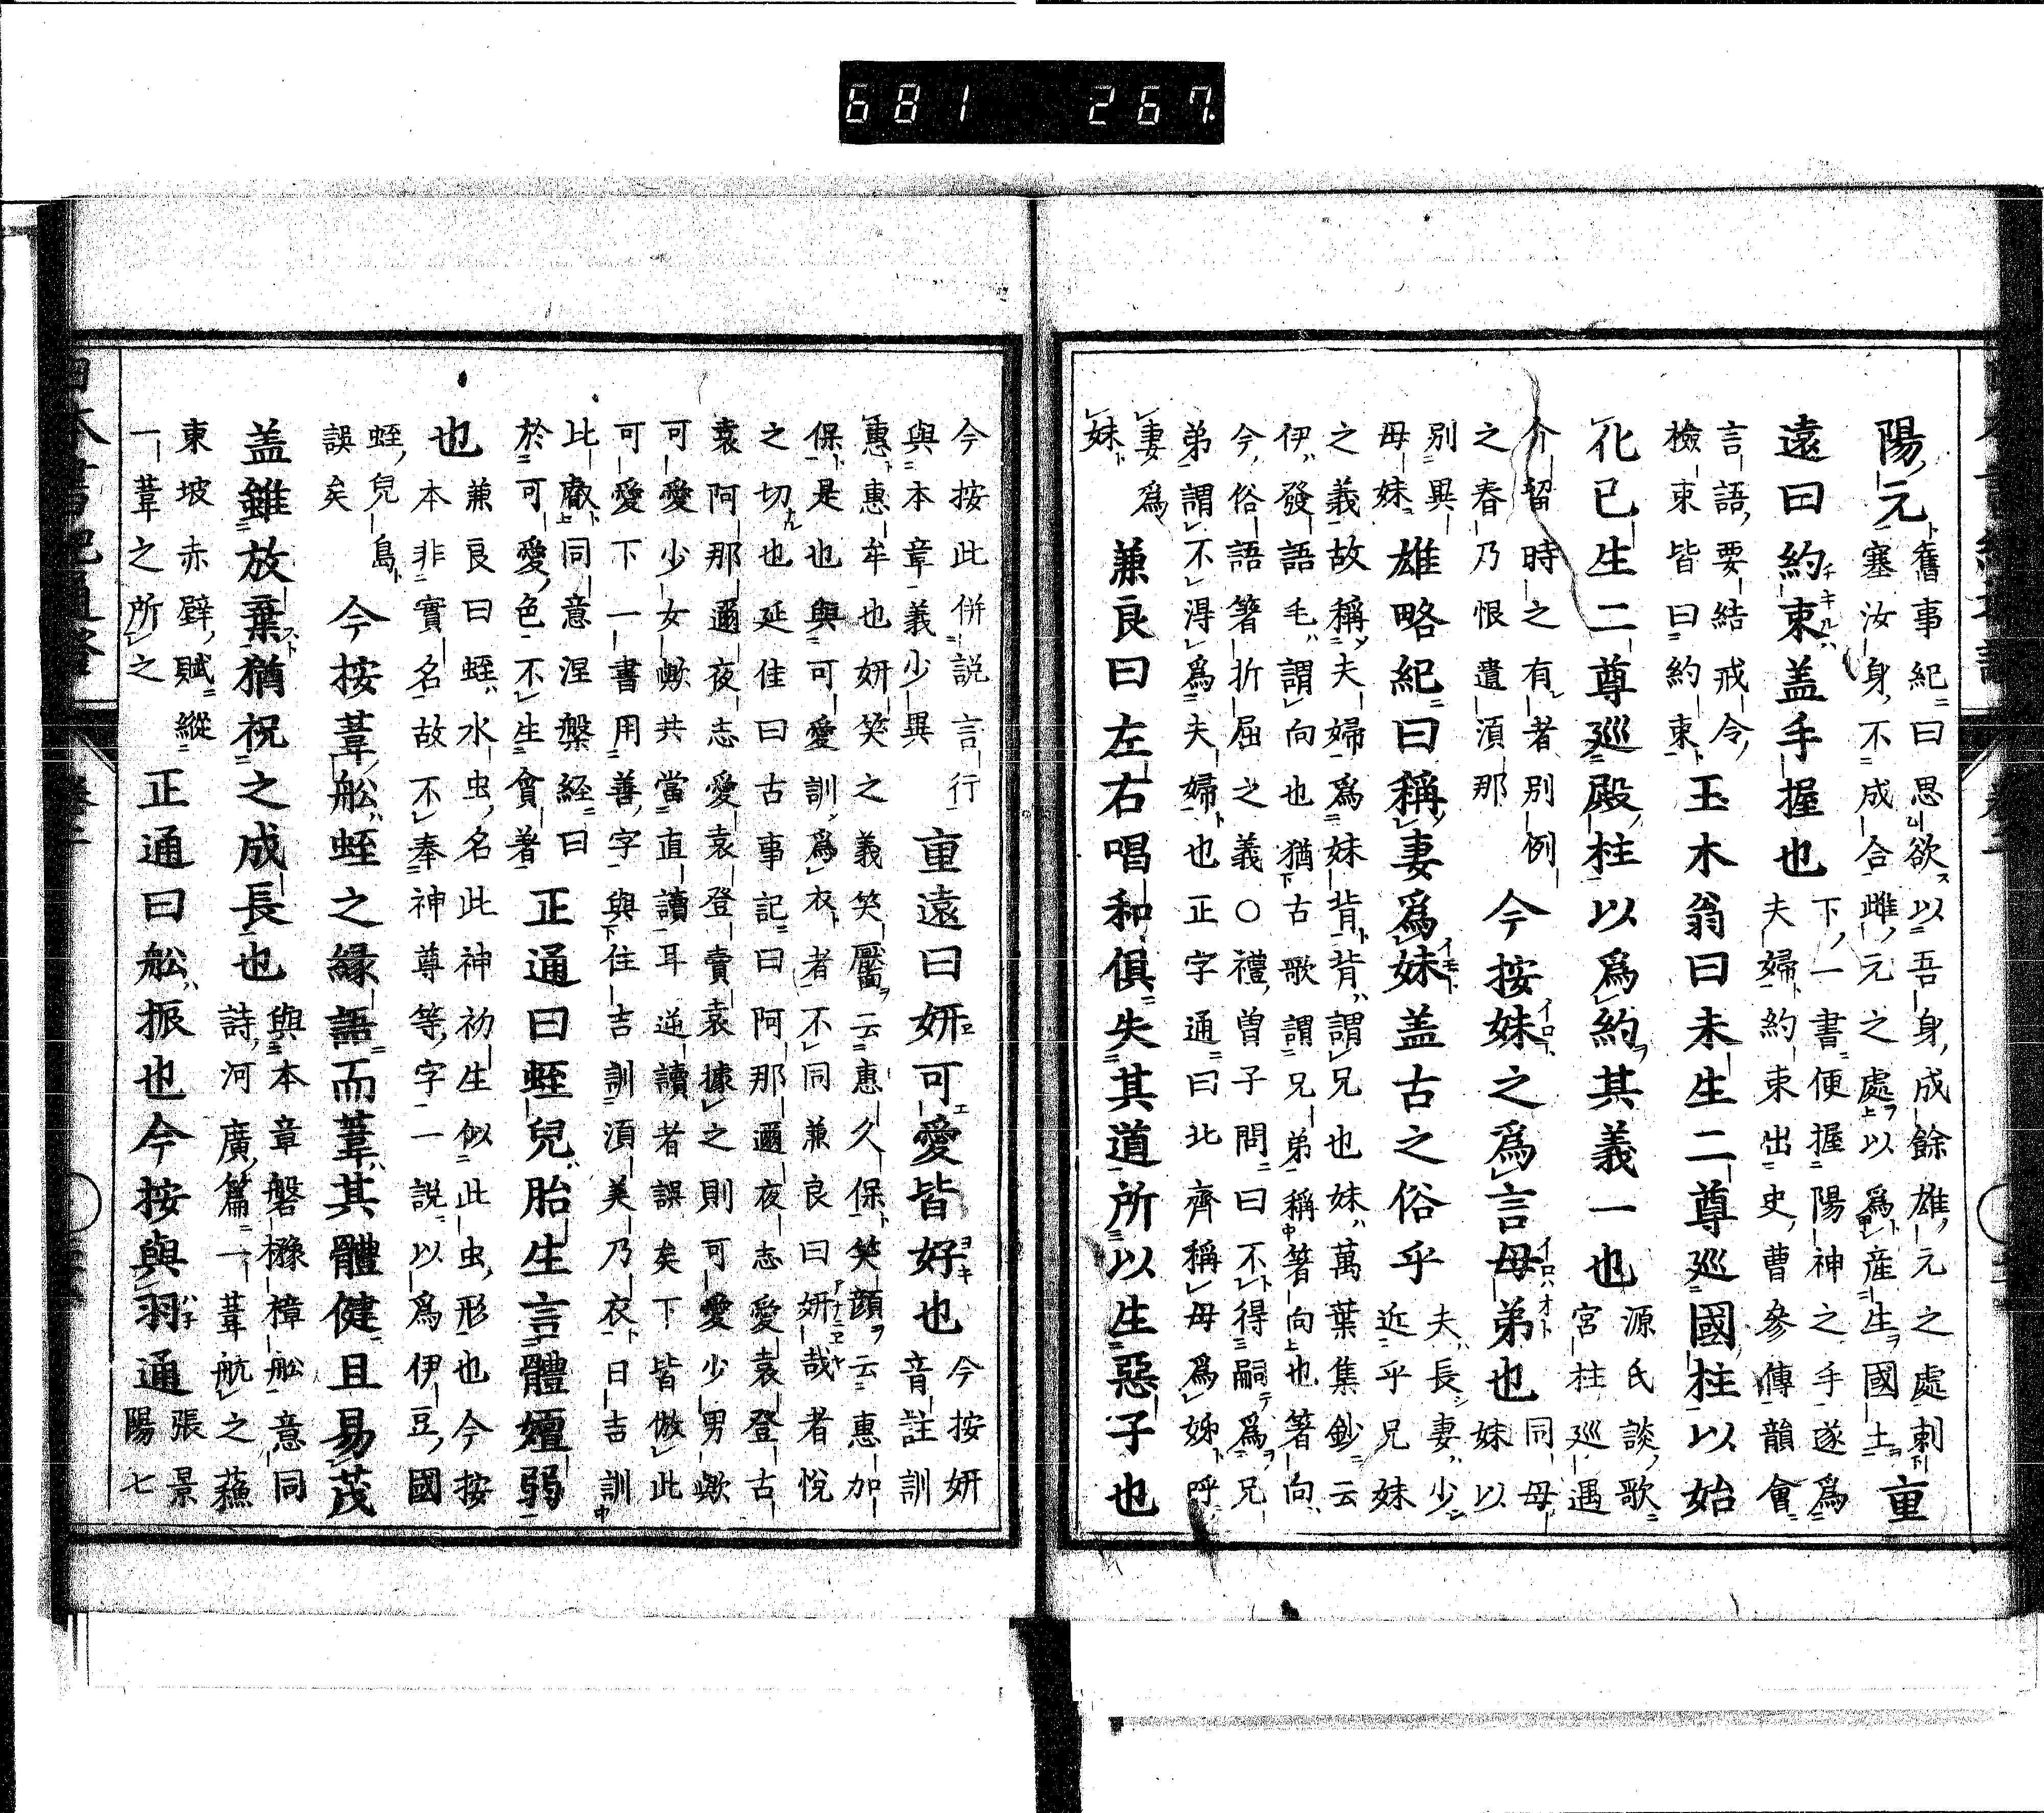 陽元
舊事紀曰思欲以吾身成餘雄元之處刺
塞汝身不成合雌元之處以爲産生國土
重
遠曰約束盖手握也
下一書便握陽神之手遂爲
夫婦約束出史曹參傳韻會
言語要結戒令
檢束皆曰約束
玉木翁曰未生二尊巡國柱以始
化已生二尊巡殿柱以爲約其義一也
源氏談歌
宮柱巡遇
介留時之有者別例
之春乃恨遺湏那
今按妹之爲言母弟也
同母
妹以
別異
母妹
雄略紀曰稱妻爲妹盖古之俗乎
夫長妻少
近乎兄妹
之義故稱夫婦爲妹背背謂兄也妹萬葉集鈔云
伊發語毛謂向也猶古歌謂兄弟稱箸向也箸向
今俗語箸折屈之義○禮曽子問曰不得嗣爲兄
弟謂不得爲夫婦也正字通曰北齊稱母爲姊呼
妻爲
妹
兼良曰左右唱和俱失其道所以生惡子也
今按此併説言行
與本章義少異
重遠曰妍可愛皆好也
今按妍
音註訓
惠惠牟也妍笑之義笑靨云惠久保笑顔云惠加
保是也與可愛訓爲衣者不同兼良曰妍哉者悅
之切也延佳曰古事記曰阿那邇夜志愛袁登古
袁阿那邇夜志愛袁登賣袁據之則可愛少男歟
可愛少女歟共當直讀耳逆讀者誤矣下皆倣此
可愛下一書用善字與住吉訓湏美乃衣日吉訓
比叡同意涅槃経曰
於可愛色不生貪著
正通曰蛭兒胎生言體嬗弱
也
兼良曰蛭水虫名此神初生似此虫形也今按
本非實名故不奉神尊等字一説以爲伊豆國
蛭兒島
誤矣
今按葦舩蛭之縁語而葦其體健且易茂
盖雖放棄猶祝之成長也
與本章磐櫲樟舩意同
詩河廣篇一葦航之蘓
東坡赤壁賦縱
一葦之所之
正通曰舩振也今按與羽通
張景
陽七